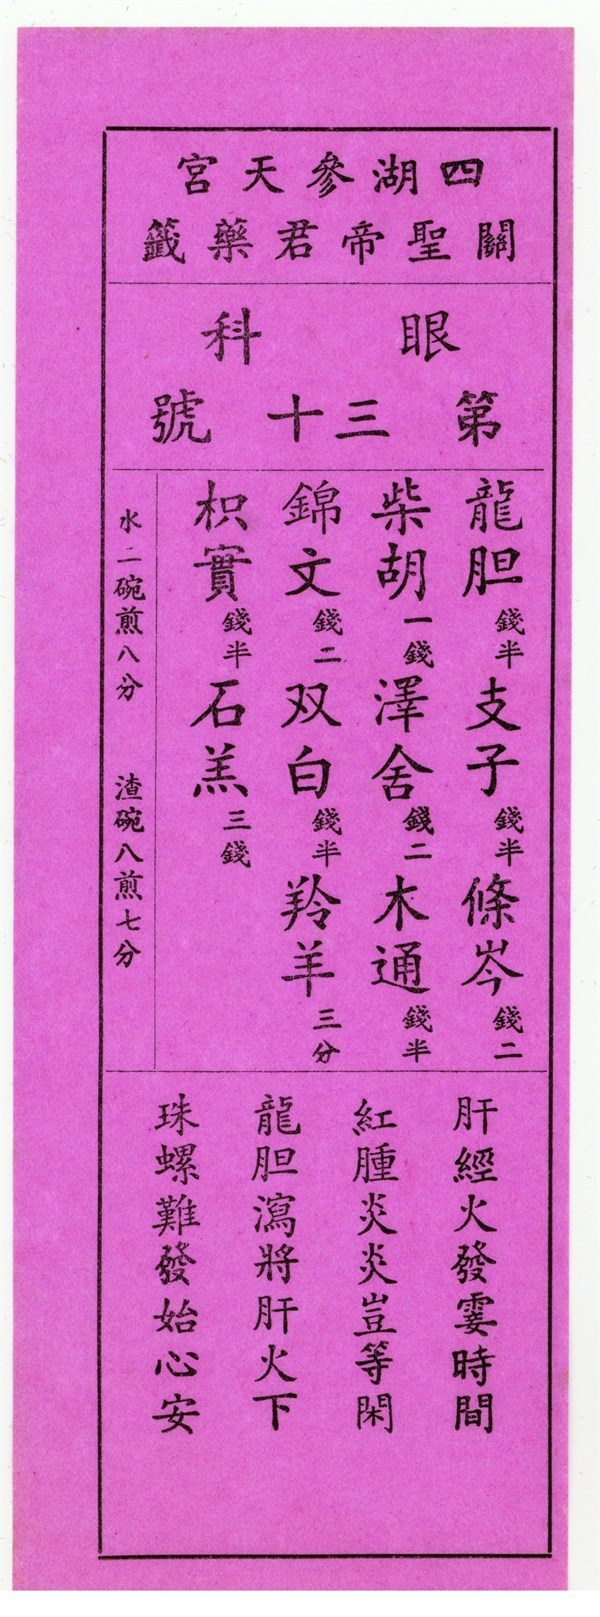 四湖參天宮
關聖帝君藥籤
眼科
第三十號
龍胆錢半支子錢半條岑錢二
柴胡一錢澤舍錢二木通錢半
錦文錢二双白錢半羚羊三分
枳實錢半石羔三錢
水二碗煎八分 渣碗八煎七分
肝經火發霎時間
紅腫炎炎豈等閑
龍胆瀉將肝火下
珠螺難發始心安